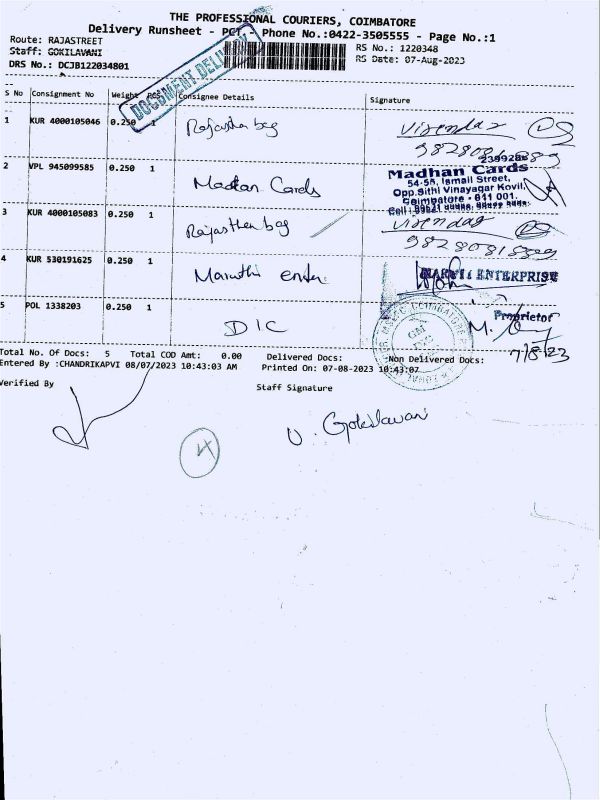 THE PROFESSIONAL COURIERS, COIMBATORE
Delivery Runsheet - PCT - Phone No.:0422-3505555 - Page No.:1
Route: RAJASTREET
RS No.: 1220348
Staff: GOKILAVANI
RS Date: 07-Aug-2023
DRS No.: DCJB122034801
DOCUMENT DELIVERY
S No Consignment No Weight PCS Consignee Details Signature
1 KUR 4000105046 0.250 1 Rajastha bag Virendar
2399286
2 VPL 945099585 0.250 1 Madhan Cards Madhan Cards
54-55, Ismail Street,
Opp.Sithi Vinayagar Kovil,
Coimbatore - 641 001.
3 KUR 4000105083 0.250 1 Rajasthan bag Virendar
4 KUR 530191625 0.250 1 Maruthi enter ENTERPRISE
Proprietor
5 POL 1338203 0.250 1 DIC M.
7/8/23
Total No. Of Docs: 5 Total COD Amt: 0.00 Delivered Docs: Non Delivered Docs:
Entered By :CHANDRIKAPVI 08/07/2023 10:43:03 AM Printed On: 07-08-2023 10:43:07
Verified By Staff Signature
U. Gokilavani
4